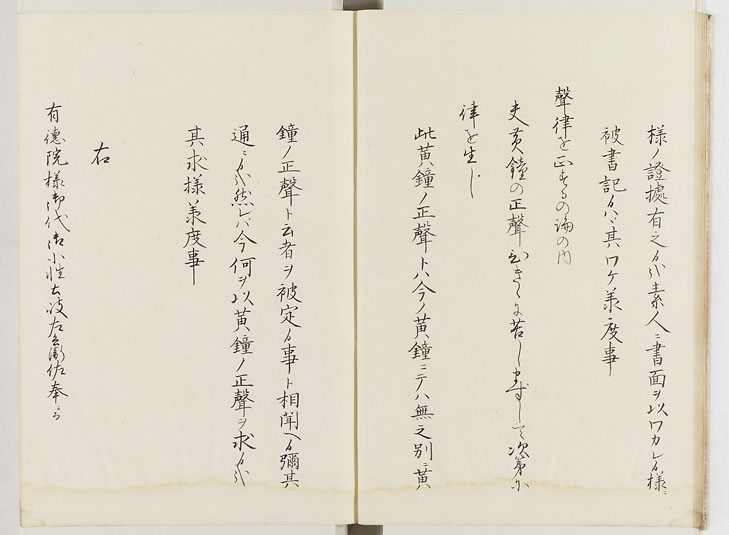 様ノ證據有之候ハヾ素人ニ書面ヲ以ワカレル様ニ
被書記候ハヾ其ワケ承度事
聲律を正するの論の内
夫黄鐘の正聲 に苦しまずして次第に
律を生じ
此黄鐘ノ正聲トハ今ノ黄鐘ニテハ無之別ニ黄
鐘ノ正聲ト云者ヲ被定候事ト相聞ヘ候彌其
通ニ候哉然レバ今何ヲ以黄鐘ノ正聲ヲ求候哉
其求様承度事
右
有徳院様御代御小性 左兵衛佐奉